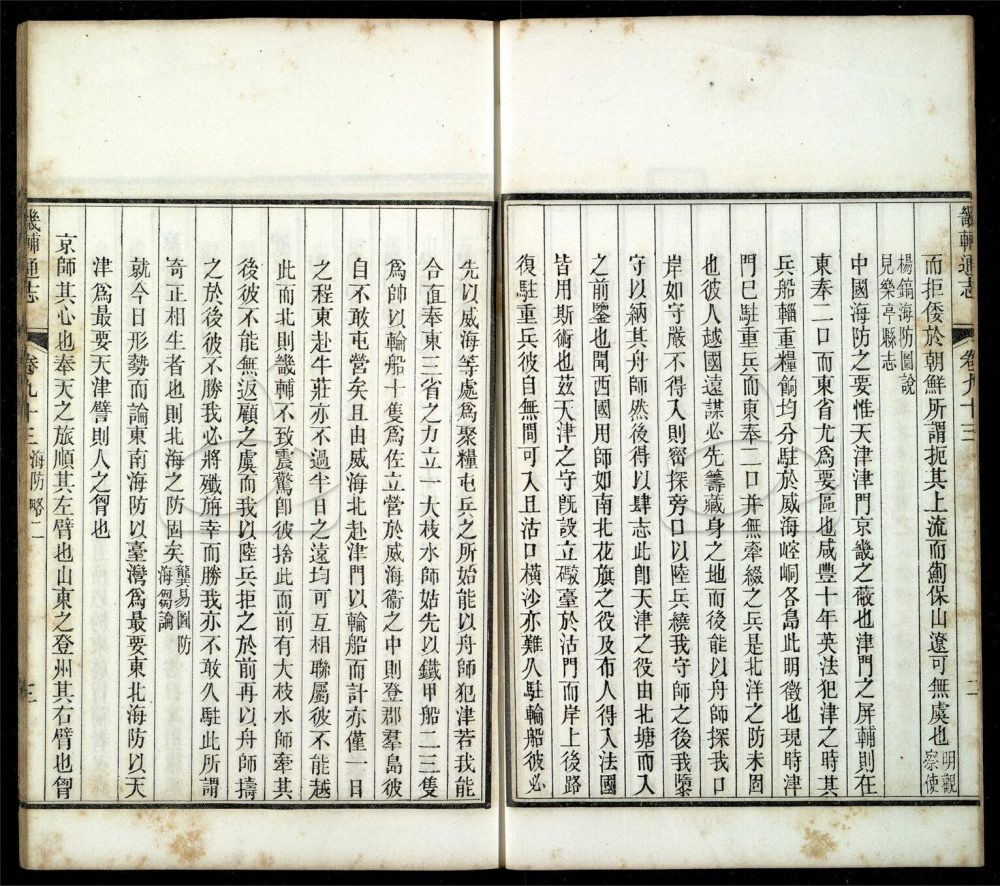 畿輔通志 卷九十三 二
而拒倭於朝鮮所謂扼其上流而薊保山遼可無虞也明觀察使
楊鎬海防圖說見樂亭縣志
中國海防之要惟天津津門京畿之蔽也津門之屏輔則在
東奉二口而東省尤爲要區也咸豐十年英法犯津之時其
兵船輜重糧餉均分駐於威海崆峒各島此明徵也現時津
門巳駐重兵而東奉二口并無牽綴之兵是北洋之防未固
也彼人越國遠謀必先籌藏身之地而後能以舟師探我口
岸如守嚴不得入則密探旁口以陸兵繞我守師之後我隳
守以納其舟師然後得以肆志此卽天津之役由北塘而入
之前鑒也聞西國用師如南北花旗之役及布人得入法國
皆用斯術也茲天津之守旣設立礮臺於沽門而岸上後路
復駐重兵彼自無間可入且沽口橫沙亦難久駐輪船彼必
先以威海等處爲聚糧屯兵之所始能以舟師犯津若我能
合直奉東三省之力立一大枝水師姑先以鐵甲船二三隻
爲帥以輪船十隻爲佐立營於威海衞之中則登郡羣島彼
自不敢屯營矣且由威海北赴津門以輪船而計亦僅一日
之程東赴牛莊亦不過半日之遠均可互相聯屬彼不能越
此而北則畿輔不致震驚卽彼捨此而前有大枝水師牽其
後彼不能無返顧之虞而我以陸兵拒之於前再以舟師擣
之於後彼不勝我必將殲旃幸而勝我亦不敢久駐此所謂
奇正相生者也則北海之防固矣龔易圖防海芻論
就今日形勢而論東南海防以臺灣爲最要東北海防以天
津爲最要天津譬則人之胷也
京師其心也奉天之旅順其左臂也山東之登州其右臂也胷
畿輔通志 卷九十三 海防略二 三